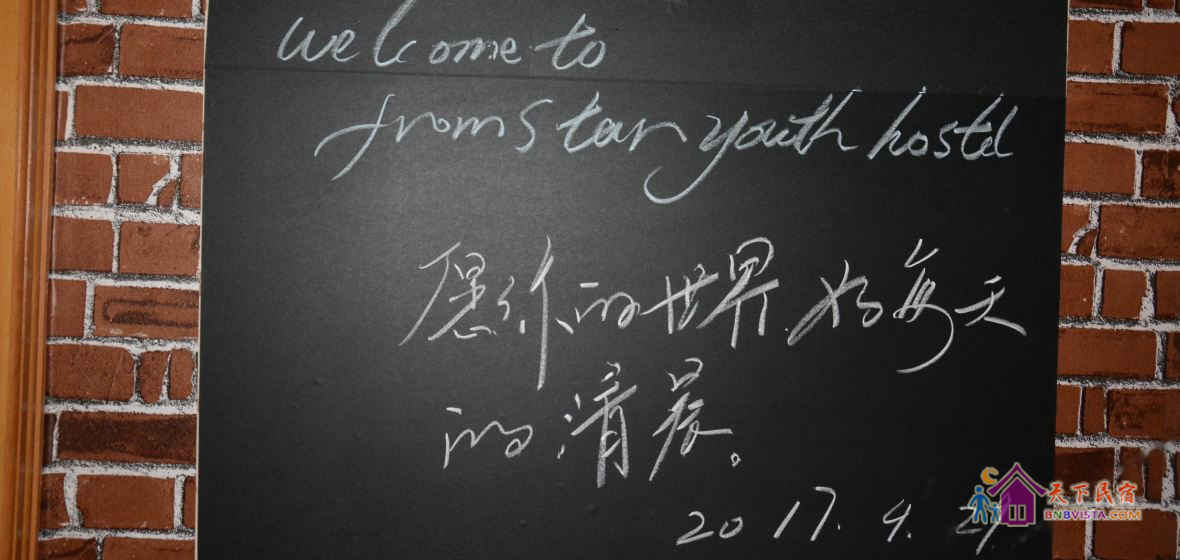 welcome to
from star youth hostel
愿你的世界如每天
的清晨。
2017.4.
天下民宿
BNBVISTA.COM